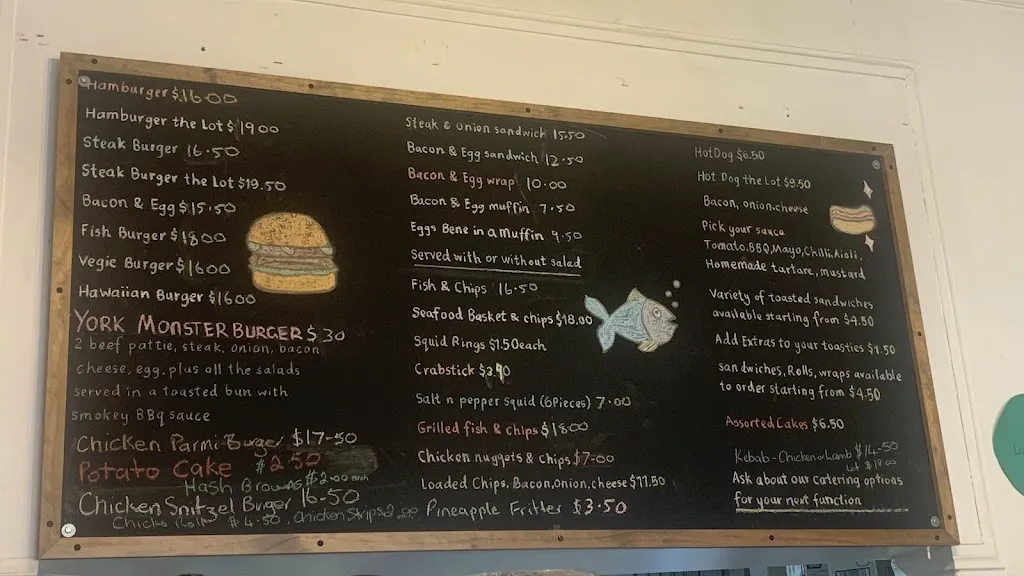 Hamburger $16.00
Hamburger the Lot $19.00
Steak Burger 16.50
Steak Burger the Lot $19.50
Bacon & Egg $15.50
Fish Burger $18.00
Vegie Burger $16.00
Hawaiian Burger $16.00
YORK MONSTER BURGER $30
2 beef pattie, steak, onion, bacon
cheese, egg, plus all the salads
served in a toasted bun with
smokey BBq sauce
Chicken Parmi Burger $17-50
Potato Cake $2.50
Hash Browns $2.00 each
Chicken Snitzel Burger 16-50
$4.50, Chicken Strips
Steak & Onion sandwich 15.50
Bacon & Egg sandwich 12.50
Bacon & Egg wrap 10.00
Bacon & Egg muffin 7.50
Eggs Bene in a Muffin 9.50
Served with or without salad
Fish & Chips 16.50
Seafood Basket & chips $18.00
Squid Rings $1.50 each
Crabstick
Salt n pepper squid (6 Pieces) 7.00
Grilled fish & chips $18.00
Chicken nuggets & Chips $7.00
Loaded Chips, Bacon, Onion, cheese $11.50
Pineapple Fritter $3.50
Hot Dog $6.50
Hot Dog the Lot $9.50
Bacon, onion, cheese
Pick your sauce
Tomato, BBQ, Mayo, Chilli, Aioli,
Homemade tartare, mustard
Variety of toasted sandwiches
available starting from $4.50
Add Extras to your toasties $1.50
sandwiches, Rolls, wraps available
to order starting from $4.50
Assorted Cakes $6.50
Kebab - Chicken or Lamb $14-50
Lot $18.00
Ask about our catering options
for your next function